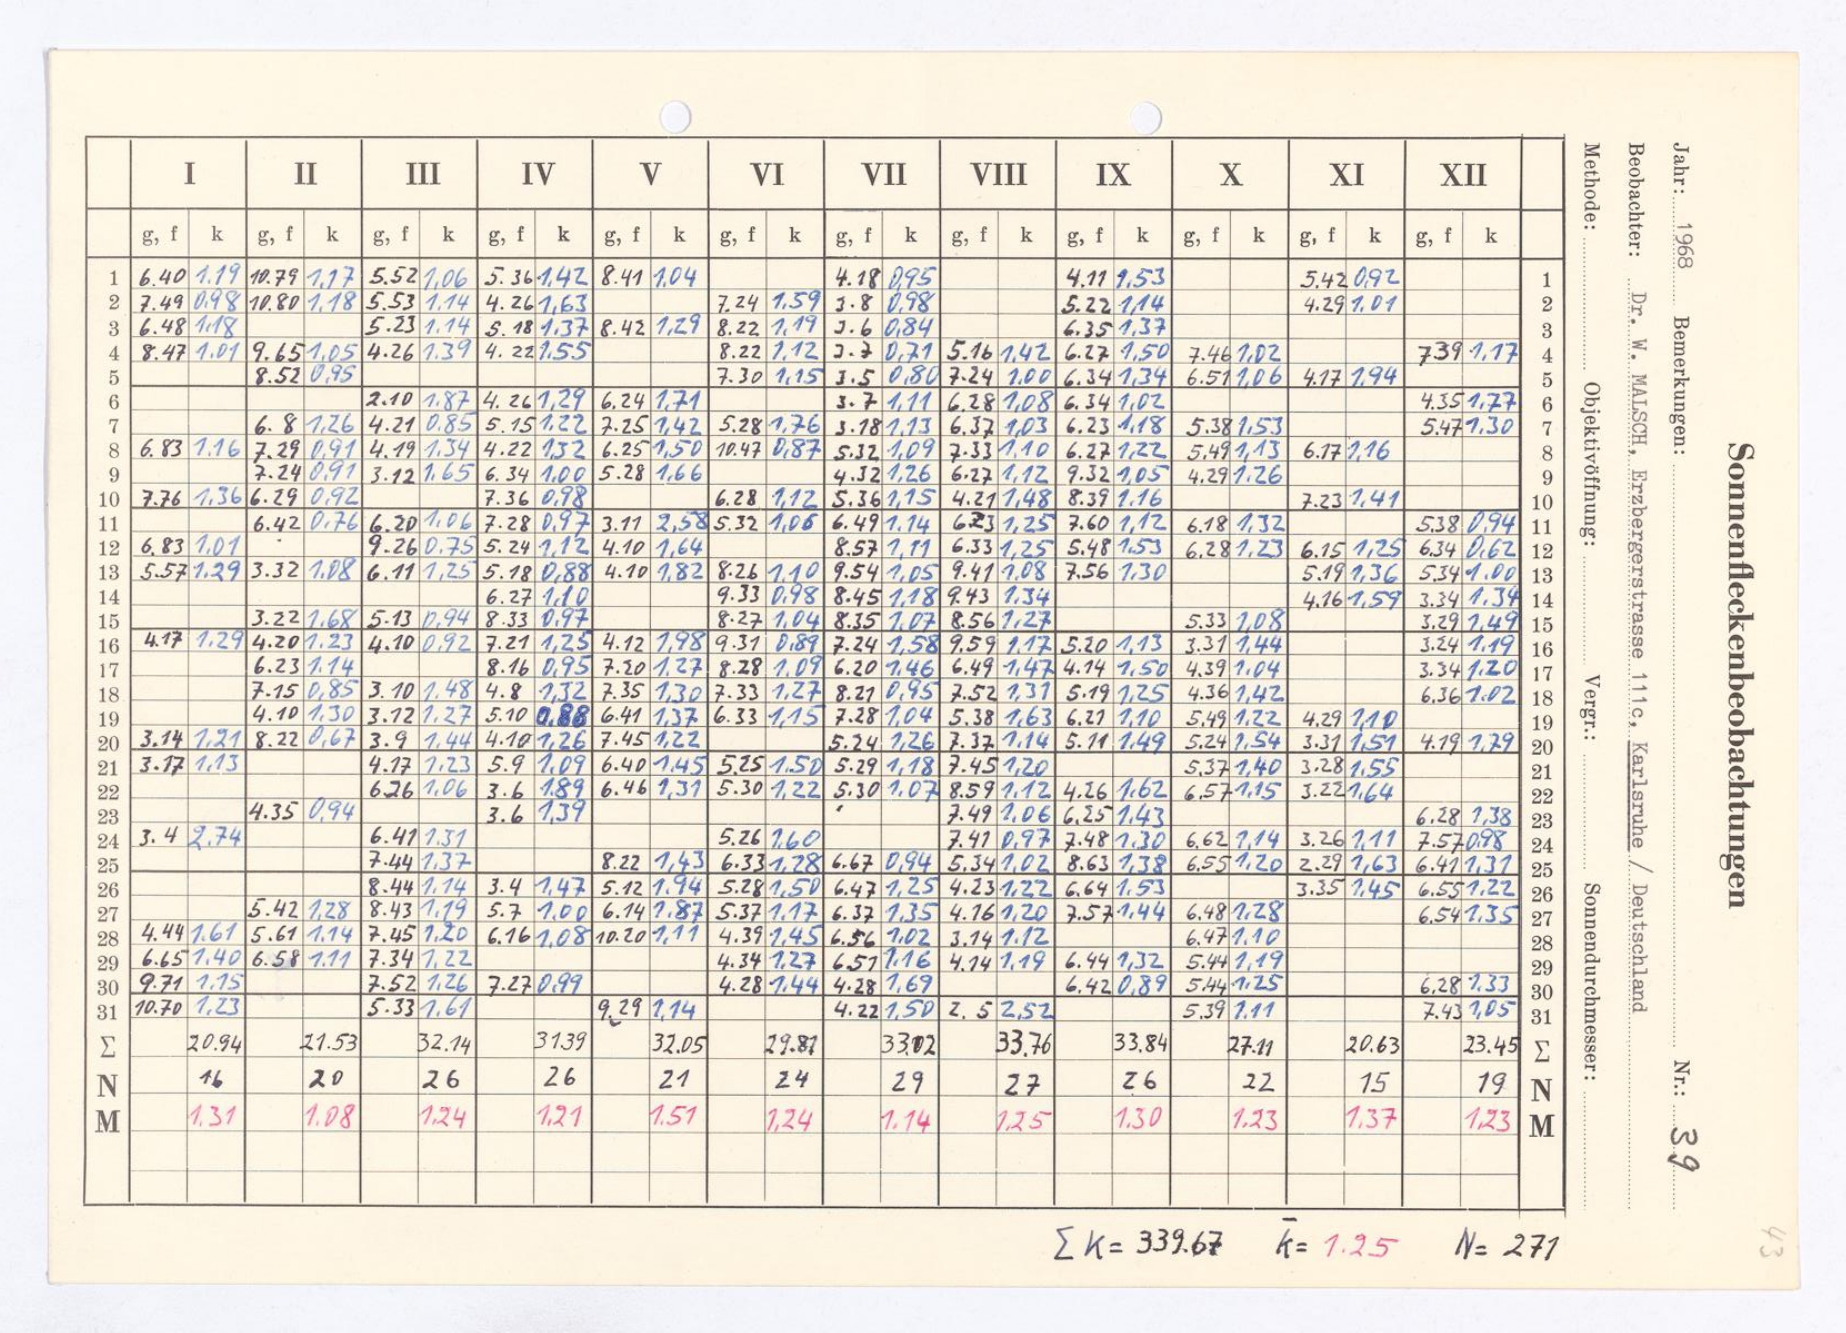 Sonnenfleckenbeobachtungen
Jahr: 1968 Bemerkungen: Nr.: 39
Beobachter: Dr. W. MALSCH, Erzbergerstrasse 111c, Karlsruhe / Deutschland
Methode: Objektivöffnung: Vergr.: Sonnendurchmesser:
I II III IV V VI VII VIII IX X XI XII
g, f k g, f k g, f k g, f k g, f k g, f k g, f k g, f k g, f k g, f k g, f k g, f k
1 6.40 1.19 10.79 1,17 5.52 1,06 5.36 1,42 8.41 1,04 4.18 0,95 4.11 1,53 5.42 0,92 1
2 7.49 0.98 10.80 1,18 5.53 1.14 4.26 1,63 7.24 1.59 3.8 0,98 5.22 1,14 4.29 1,01 2
3 6.48 1,18 5.23 1.14 5.18 1,37 8.42 1,29 8.22 1,19 3.6 0,84 6.35 1,37 3
4 8.47 1.01 9.65 1,05 4.26 1.39 4.22 1.55 8.22 1,12 3.7 0,71 5.16 1,42 6.27 1,50 7.46 1,02 7.39 1,17 4
5 8.52 0,95 7.30 1,15 3.5 0,80 7.24 1.00 6.34 1,34 6.51 1,06 4.17 1,94 5
6 2.10 1.87 4.26 1,29 6.24 1,71 3.7 1,11 6.28 1,08 6.34 1,02 4.35 1,77 6
7 6.8 1,26 4.21 0,85 5.15 1,22 7.25 1,42 5.28 1,76 3.18 1,13 6.37 1,03 6.23 1,18 5.38 1,53 5.47 1.30 7
8 6.83 1.16 7.29 0,91 4.19 1.34 4.22 1,32 6.25 1,50 10.47 0,87 5.32 1,09 7.33 1,10 6.27 1,22 5,49 1,13 6.17 1,16 8
9 7.24 0,91 3.12 1,65 6.34 1.00 5.28 1,66 4.32 1,26 6.27 1,12 9.32 1,05 4.29 1.26 9
10 7.76 1,36 6.29 0,92 7.36 0,98 6.28 1,12 5.36 1,15 4.21 1,48 8.39 1.16 7.23 1,41 10
11 6.42 0,76 6.20 1.06 7.28 0,97 3.11 2,58 5.32 1,06 6.49 1.14 6.23 1,25 7.60 1,12 6.18 1,32 5.38 0,94 11
12 6.83 1.01 9.26 0.75 5.24 1,12 4.10 1,64 8.57 1,11 6.33 1,25 5.48 1.53 6.28 1,23 6.15 1,25 6.34 0,62 12
13 5.57 1.29 3.32 1,08 6.11 1,25 5.18 0,88 4.10 1,82 8.26 1,10 9.54 1,05 9.41 1,08 7.56 1,30 5.19 1,36 5.34 1.00 13
14 6.27 1,10 9.33 0,98 8.45 1,18 9.43 1.34 4.16 1,59 3.34 1.34 14
15 3.22 1,68 5.13 0,94 8.33 0,97 8.27 1,04 8.35 1,07 8.56 1,27 5.33 1,08 3.29 1,49 15
16 4.17 1,29 4.20 1.23 4.10 0,92 7.21 1,25 4.12 1,98 9.31 0,89 7.24 1,58 9.59 1,17 5.20 1,13 3.31 1,44 3.24 1.19 16
17 6.23 1.14 8.16 0,95 7.20 1,27 8.28 1,09 6.20 1,46 6.49 1,47 4.14 1,50 4.39 1.04 3.34 1.20 17
18 7.15 0,85 3.10 1,48 4.8 1,32 7.35 1,30 7.33 1,27 8.21 0,95 7.52 1,31 5.19 1,25 4.36 1,42 6.36 1.02 18
19 4.10 1.30 3.12 1,27 5.10 0.88 6.41 1,37 6.33 1,15 7.28 1,04 5.38 1,63 6.21 1,10 5.49 1,22 4.29 1,10 19
20 3.14 1,21 8.22 0,67 3.9 1.44 4.10 1,26 7.45 1,22 5.24 1,26 7.37 1.14 5.11 1,49 5.24 1,54 3.31 1,51 4.19 1,79 20
21 3.17 1,13 4.17 1,23 5.9 1,09 6.40 1.45 5.25 1.50 5.29 1,18 7.45 1,20 5,37 1,40 3.28 1.55 21
22 6.26 1,06 3.6 1.89 6.46 1,31 5.30 1,22 5.30 1.07 8.59 1.12 4.26 1.62 6.57 1,15 3.22 1,64 22
23 4.35 0,94 3.6 1,39 7.49 1.06 6.25 1,43 6.28 1,38 23
24 3.4 2,74 6.41 1.31 5.26 1,60 7.41 0,97 7.48 1,30 6.62 1,14 3.26 1,11 7.57 0,98 24
25 7.44 1.37 8.22 1,43 6.33 1,28 6.67 0,94 5.34 1.02 8.63 1,38 6.55 1.20 2.29 1,63 6.41 1,31 25
26 8.44 1.14 3.4 1,47 5.12 1.94 5.28 1,50 6.47 1,25 4.23 1,22 6.64 1.53 3.35 1,45 6.55 1.22 26
27 5.42 1,28 8.43 1,19 5.7 1.00 6.14 1.87 5.37 1.17 6.37 1,35 4.16 1,20 7.57 1,44 6.48 1,28 6.54 1,35 27
28 4.44 1.61 5.61 1.14 7.45 1,20 6.16 1,08 10.20 1,11 4.39 1,45 6.56 1,02 3.14 1.12 6.47 1.10 28
29 6.65 1.40 6.58 1.11 7.34 1,22 4.34 1,27 6.51 1.16 4.14 1,19 6.44 1,32 5.44 1,19 29
30 9.71 1,15 7.52 1,26 7.27 0,99 4.28 1.44 4.28 1,69 6.42 0,89 5.44 1.25 6.28 1.33 30
31 10.70 1,23 5.33 1.61 9.29 1,14 4.22 1,50 2.5 2,52 5.39 1.11 7.43 1,05 31
Σ 20.94 21.53 32.14 31.39 32.05 29.81 33.02 33.76 33.84 27.11 20.63 23.45 Σ
N 16 20 26 26 21 24 29 27 26 22 15 19 N
M 1.31 1.08 1.24 1,21 1.51 1,24 1.14 1,25 1.30 1.23 1.37 1,23 M
Σ K = 339.67 k̄ = 1.25 N = 271
43